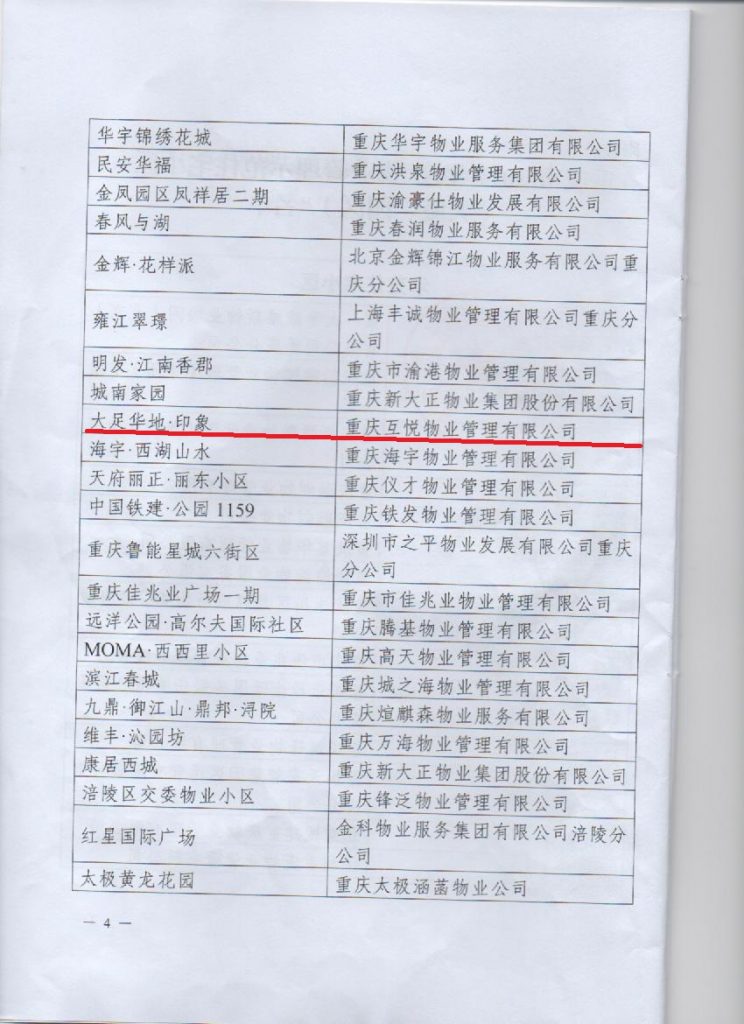 华宇锦绣花城 重庆华宇物业服务集团有限公司
民安华福 重庆洪泉物业管理有限公司
金凤园区凤祥居二期 重庆渝豪仕物业发展有限公司
春风与湖 重庆春润物业服务有限公司
金辉·花样派 北京金辉锦江物业服务有限公司重
庆分公司
雍江翠璟 上海丰诚物业管理有限公司重庆分
公司
明发·江南香郡 重庆市渝港物业管理有限公司
城南家园 重庆新大正物业集团股份有限公司
大足华地·印象 重庆互悦物业管理有限公司
海宇·西湖山水 重庆海宇物业管理有限公司
天府丽正·丽东小区 重庆仪才物业管理有限公司
中国铁建·公园 1159 重庆铁发物业管理有限公司
重庆鲁能星城六街区 深圳市之平物业发展有限公司重庆
分公司
重庆佳兆业广场一期 重庆市佳兆业物业管理有限公司
远洋公园·高尔夫国际社区 重庆腾基物业管理有限公司
MOMA·西西里小区 重庆高天物业管理有限公司
滨江春城 重庆城之海物业管理有限公司
九鼎·御江山·鼎邦·浔院 重庆煊麒森物业服务有限公司
维丰·沁园坊 重庆万海物业管理有限公司
康居西城 重庆新大正物业集团股份有限公司
涪陵区交委物业小区 重庆锋泛物业管理有限公司
红星国际广场 金科物业服务集团有限公司涪陵分
公司
太极黄龙花园 重庆太极涵菡物业公司
— 4 —